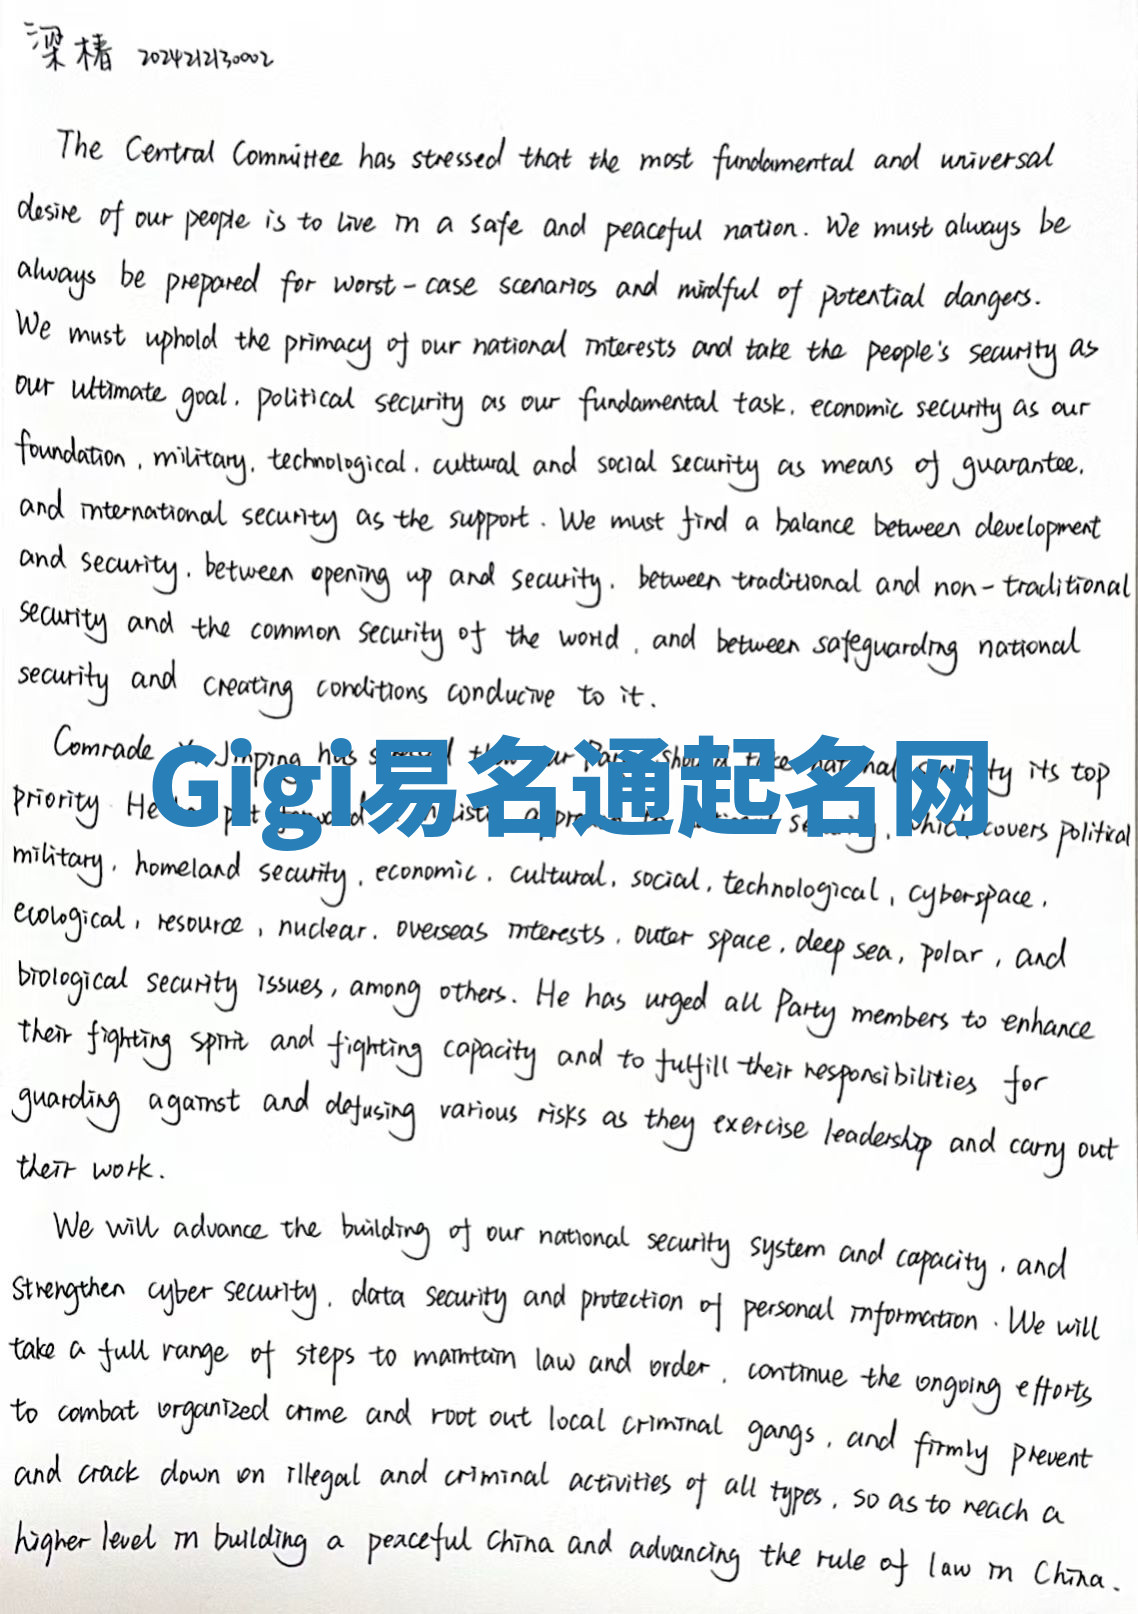 梁椿 2024212130002
The Central Committee has stressed that the most fundamental and universal
desire of our people is to live in a safe and peaceful nation. We must always be
always be prepared for worst-case scenarios and mindful of potential dangers.
We must uphold the primacy of our national interests and take the people's security as
our ultimate goal, political security as our fundamental task, economic security as our
foundation, military, technological, cultural and social security as means of guarantee,
and international security as the support. We must find a balance between development
and security, between opening up and security, between traditional and non-traditional
security and the common security of the world, and between safeguarding national
security and creating conditions conducive to it.
Comrade Jinping has our its top
Gigi易名通起名网
priority. He put which covers political
military, homeland security, economic, cultural, social, technological, cyberspace,
ecological, resource, nuclear, overseas interests, outer space, deep sea, polar, and
biological security issues, among others. He has urged all Party members to enhance
their fighting spirit and fighting capacity and to fulfill their responsibilities for
guarding against and defusing various risks as they exercise leadership and carry out
their work.
We will advance the building of our national security system and capacity, and
strengthen cyber security, data security and protection of personal information. We will
take a full range of steps to maintain law and order, continue the ongoing efforts
to combat organized crime and root out local criminal gangs, and firmly prevent
and crack down on illegal and criminal activities of all types, so as to reach a
higher level in building a peaceful China and advancing the rule of law in China.